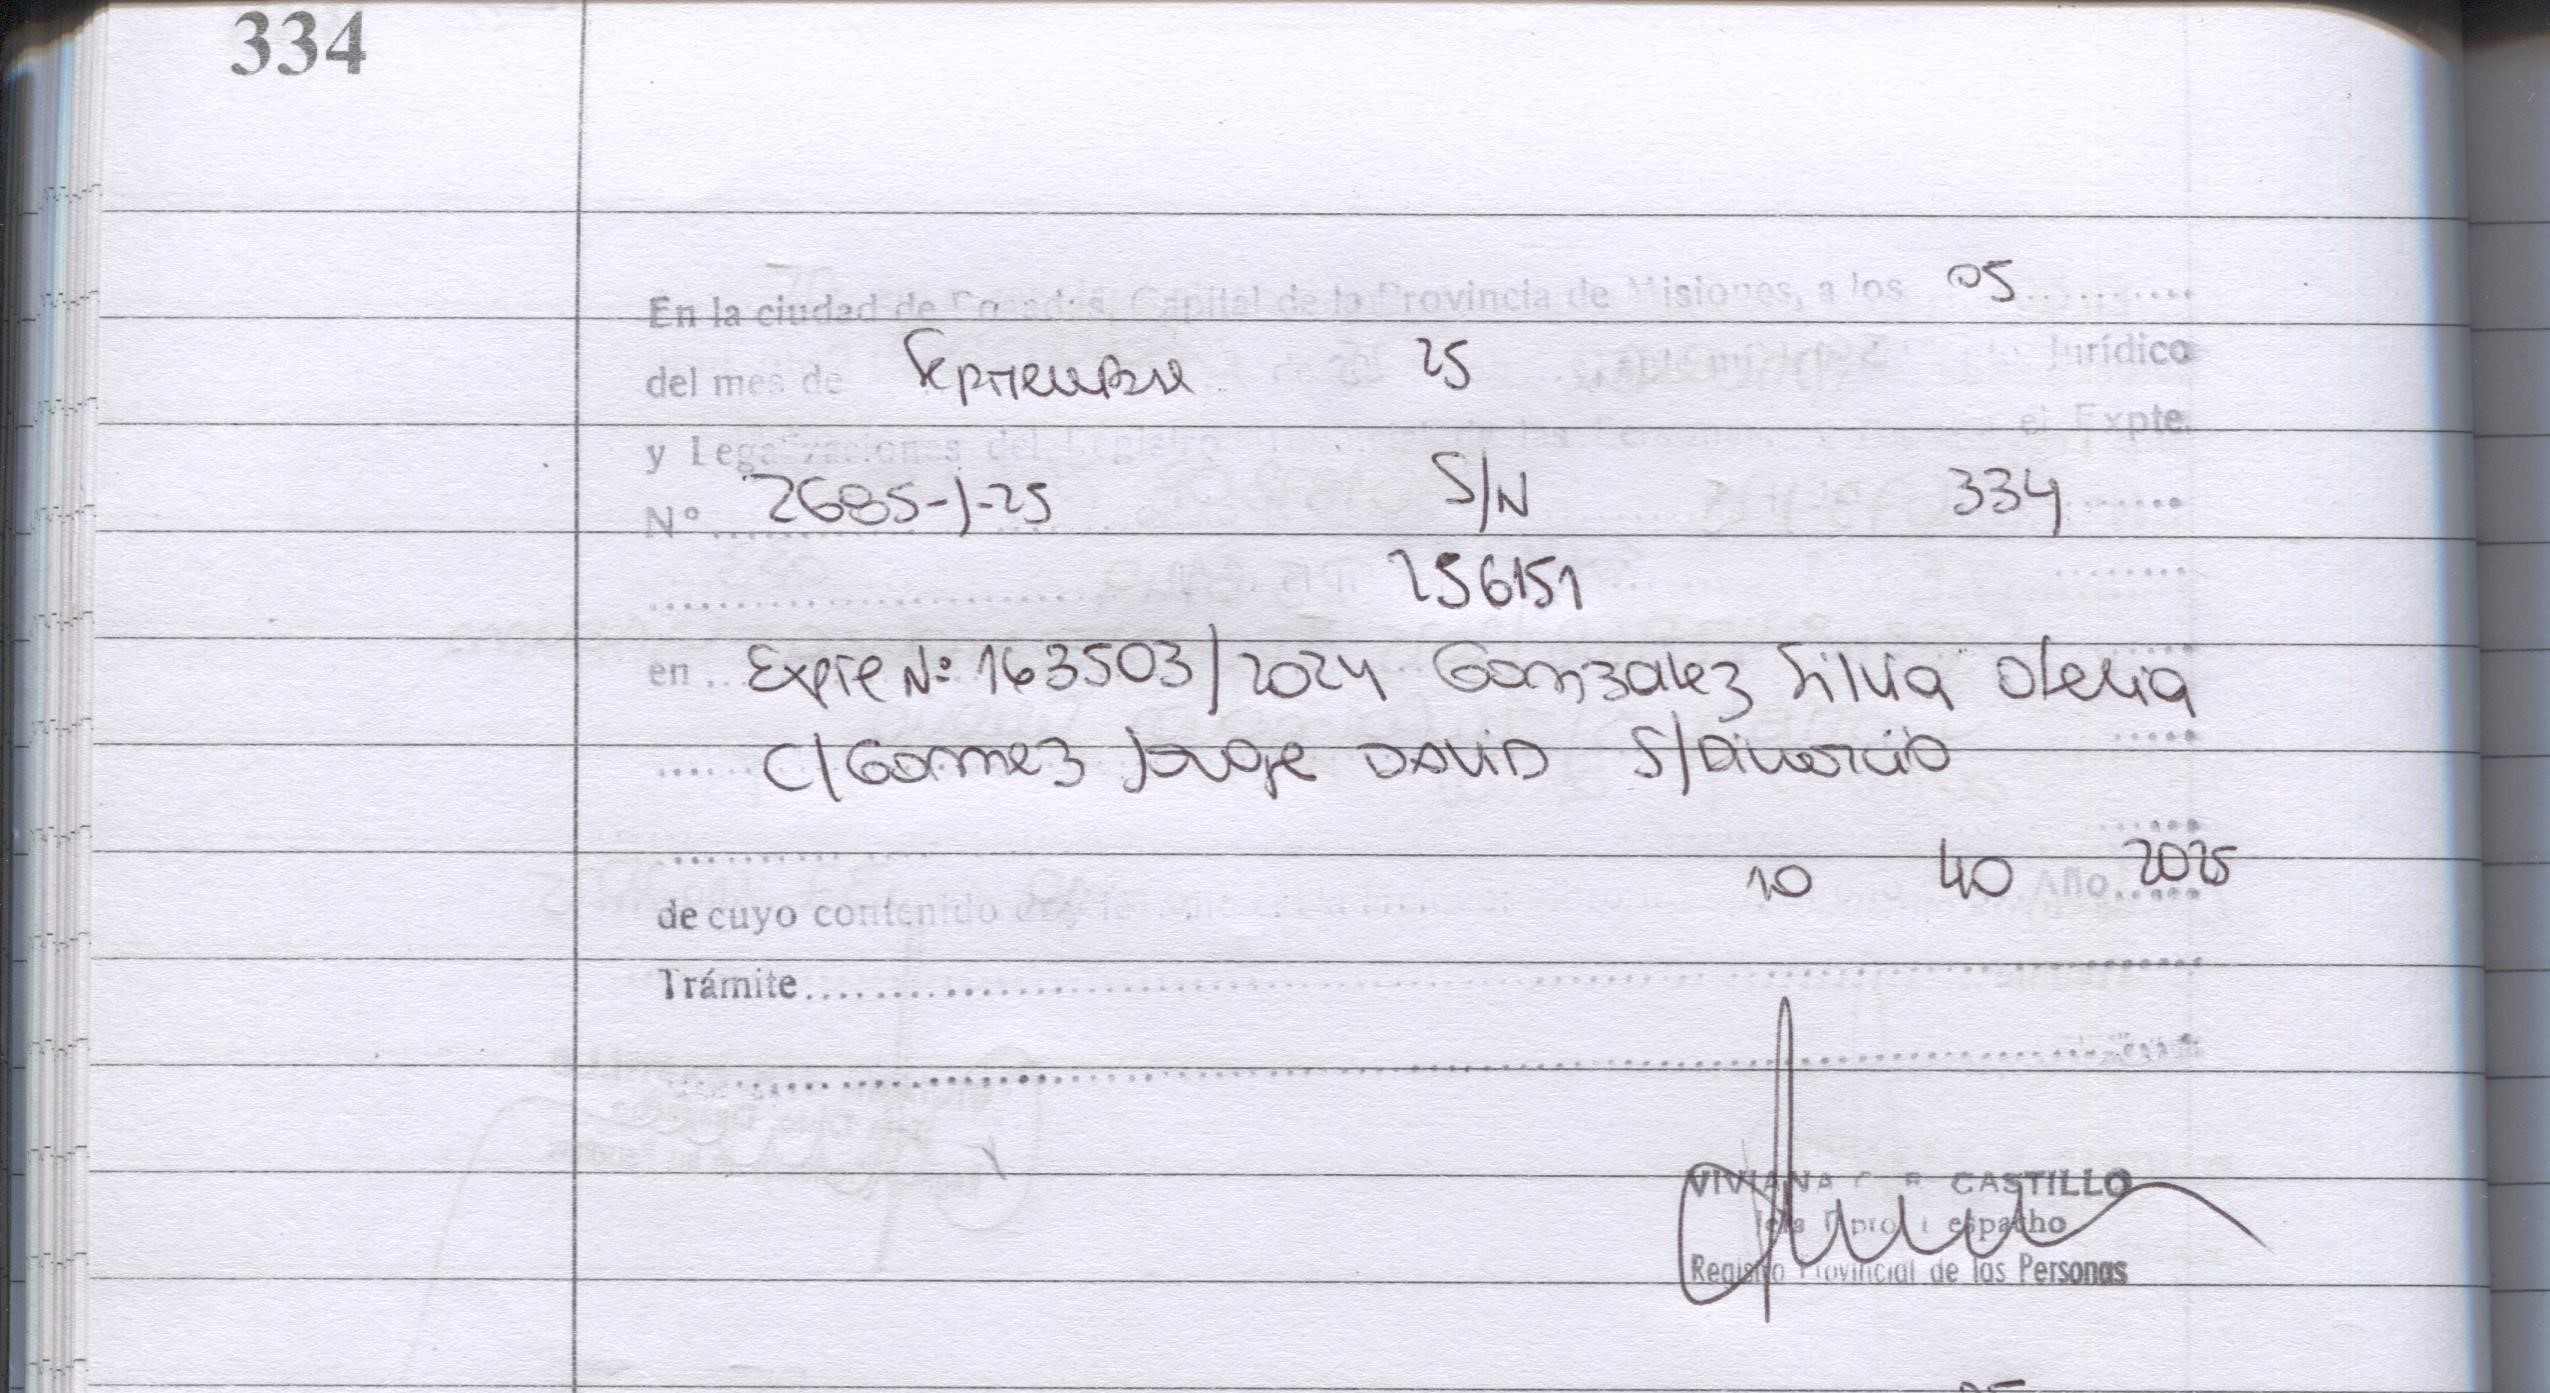 334
En la ciudad de Posadas, Capital de la Provincia de Misiones, a los 05
del mes de Septiembre de 20 25 Jurídico
y Legalizaciones del Registro de las Personas, el Expte.
Nº 2685-J-25 S/N 334
256151
en Expte Nº 163503/2024 Gonzalez Silvia Ofelia
C/ Gomez Jorge David S/Divorcio
10 40 Año 2025
de cuyo contenido doy fe
Trámite
VIVIANA CASTILLO
Jefa Dpto Despacho
Registro Provincial de las Personas